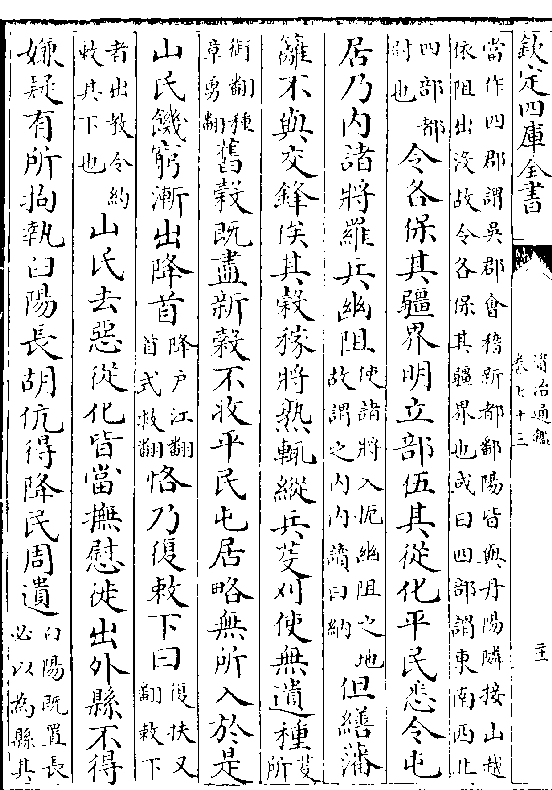 欽定四庫全書
資治通鑑
卷七十三
二十三
當作四郡謂吳郡會稽新都鄱陽皆與丹陽隣接山越
依阻出沒故令各保其疆界也或曰四部謂東南西北
四部都
尉也
令各保其疆界明立部伍其從化平民悉令屯
居乃內諸將羅兵幽阻
使諸將入扼幽阻之地
故謂之内内讀曰納
但繕藩
籬不與交鋒俟其穀稼將熟輒縱兵芟刈使無遺種
芟
所
銜翻種
章勇翻
舊穀既盡新穀不收平民屯居略無所入於是
山民饑窮漸出降首
降户江翻
首式救翻
恪乃復敕下曰
復扶又
翻敕下
者出教令約
敕其下也
山民去惡從化皆當撫慰徙出外縣不得
嫌疑有所拘執臼陽長胡伉得降民周遺
臼陽既置長
必以為縣其